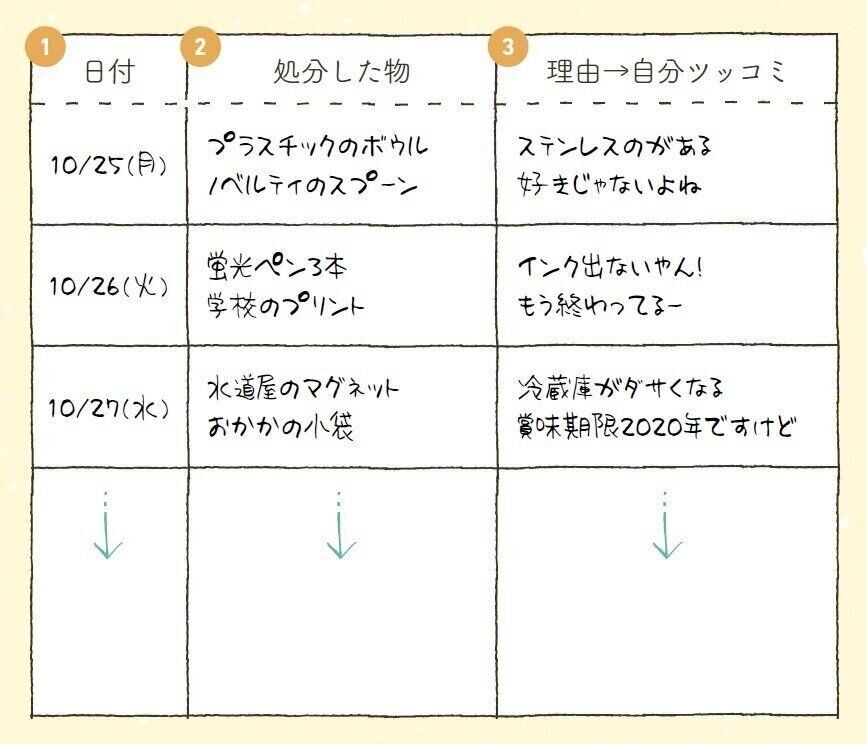 1 2 3
日付 処分した物 理由→自分ツッコミ
10/25(月)
プラスチックのボウル
ノベルティのスプーン
ステンレスのがある
好きじゃないよね
10/26(火)
蛍光ペン3本
学校のプリント
インク出ないやん!
もう終わってるー
10/27(水)
水道屋のマグネット
おかかの小袋
冷蔵庫がダサくなる
賞味期限2020年ですけど